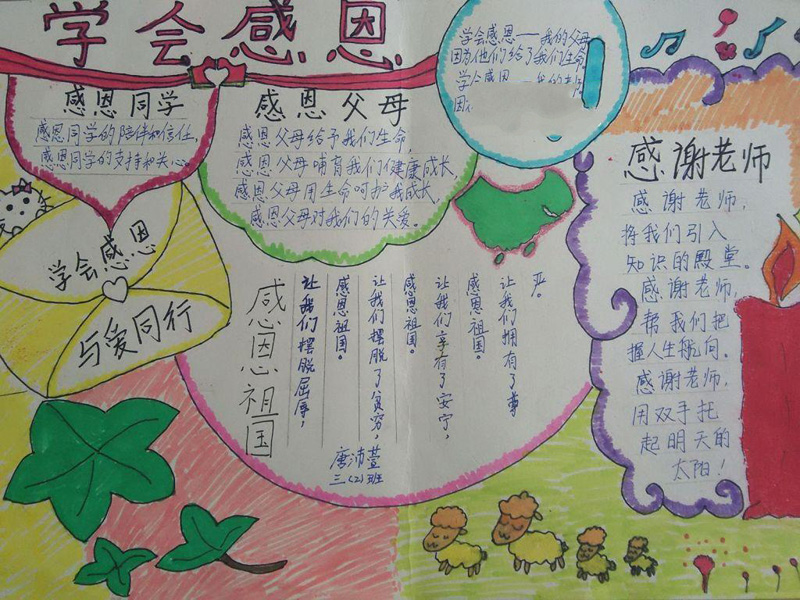 学会感恩
感恩同学
感恩同学的陪伴和信任,
感恩同学的支持和关心。
感恩父母
感恩父母给予我们生命,
感恩父母哺育我们健康成长,
感恩父母用生命呵护我成长,
感恩父母对我们的关爱。
学会感恩——我的父母
因为他们给了我们生命
学会感恩
因
感谢老师
感谢老师,
将我们引入
知识的殿堂。
感谢老师,
帮我们把
握人生航向。
感谢老师,
用双手托
起明天的
太阳!
学会感恩
与爱同行
感恩祖国
让我们摆脱屈辱,
感恩祖国。
让我们摆脱了贫穷,
感恩祖国。
让我们享有了安宁,
感恩祖国。
让我们拥有了尊
严。
唐沛萱
三(2)班